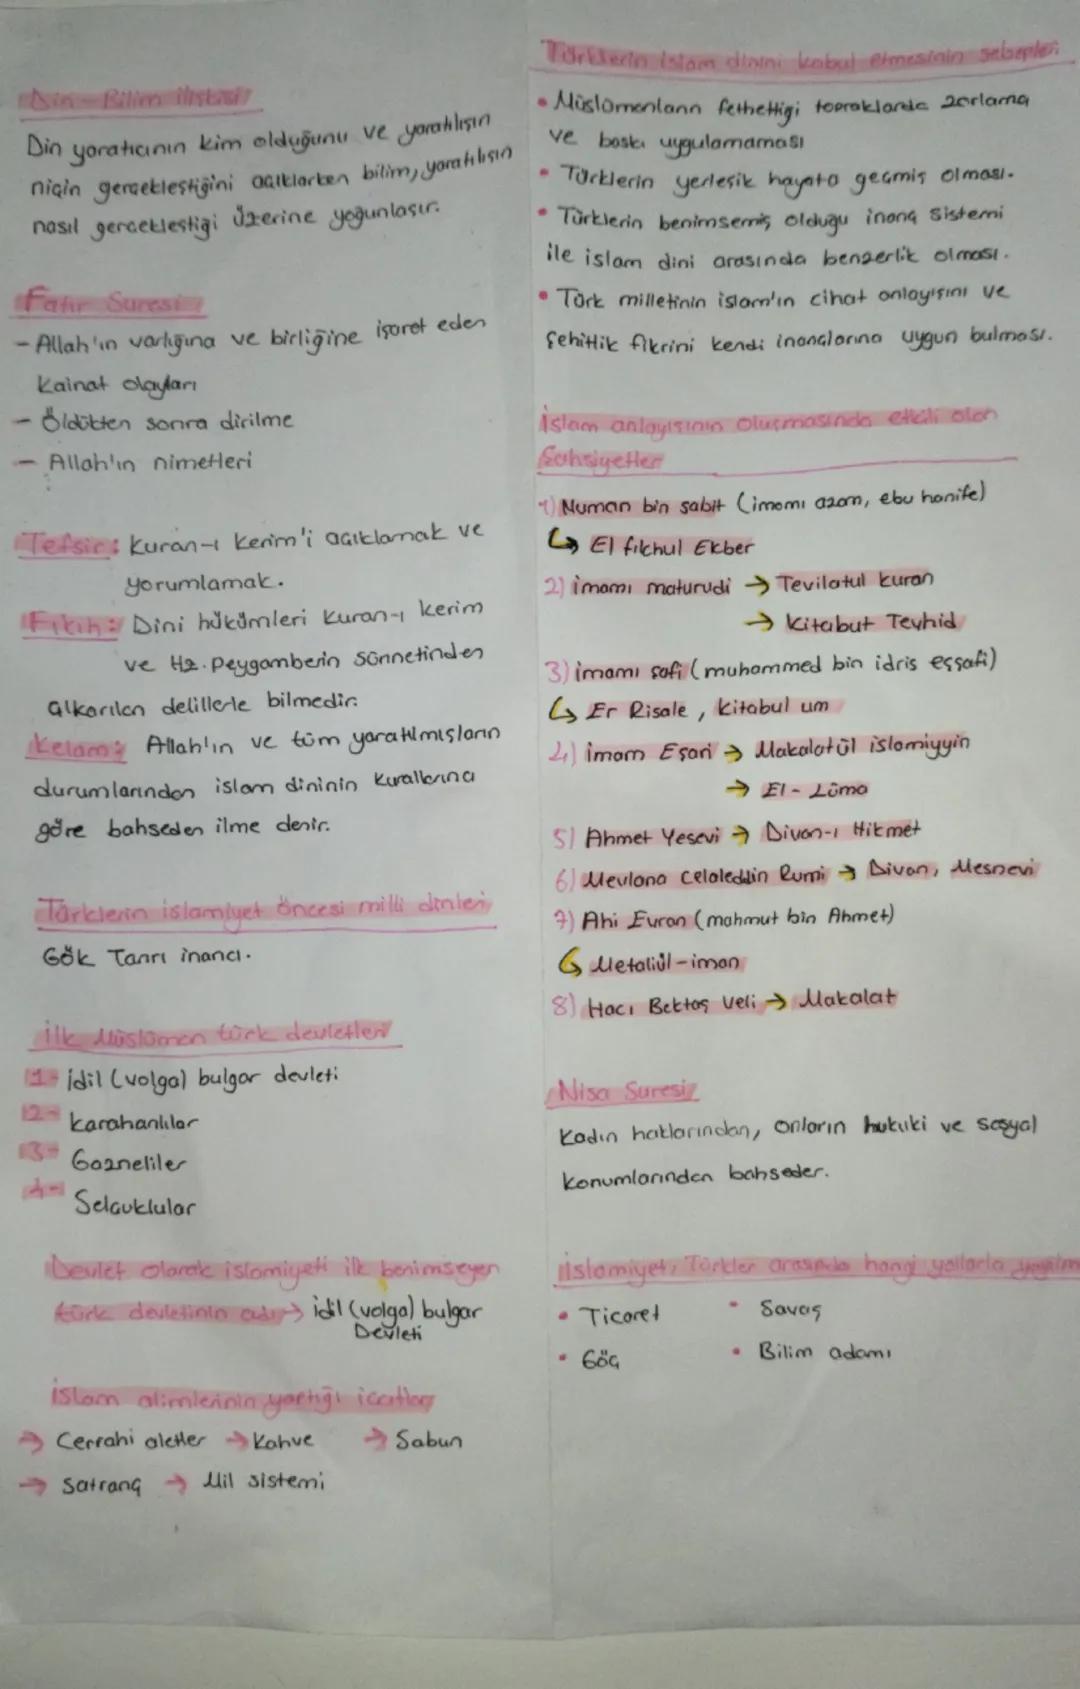 Din-Bilim ilişkisi
Din yaratıcının kim olduğunu ve yaratılışın
niçin gerçekleştiğini açıklarken bilim, yaratılışın
nasıl gerçekleştiği üzerine yoğunlaşır.
Fatır Suresi
- Allah'ın varlığına ve birliğine işaret eden
Kainat olayları
- Öldükten sonra dirilme
- Allah'ın nimetleri
Tefsir: Kuran-ı Kerim'i açıklamak ve
yorumlamak.
Fıkıh: Dini hükümleri Kuran-ı kerim
ve Hz. Peygamberin Sünnetinden
çıkarılan delillerle bilmedir.
Kelam: Allah'ın ve tüm yaratılmışların
durumlarından islam dininin kurallarına
göre bahseden ilme denir.
Türklerin islamiyet öncesi milli dinleri
Gök Tanrı inancı.
ilk Müslüman türk devletleri
1- idil (volga) bulgar devleti
2- karahanlılar
3- Gazneliler
4- Selçuklular
Devlet olarak islamiyeti ilk benimseyen
türk devletinin adı → idil (volga) bulgar
Devleti
islam alimlerinin yaptığı icatlar
→ Cerrahi aletler → Kahve → Sabun
→ Satranç → Mil sistemi
Türklerin islam dinini kabul etmesinin sebepleri
• Müslümanların fethettiği topraklarda zorlama
ve baskı uygulamaması
• Türklerin yerleşik hayata geçmiş olması.
• Türklerin benimsemiş olduğu inanç sistemi
ile islam dini arasında benzerlik olması.
• Türk milletinin islam'ın cihat anlayışını ve
Şehitlik fikrini kendi inançlarına uygun bulması.
İslam anlayışının oluşmasında etkili olan
Şahsiyetler
1) Numan bin sabit (imamı azam, ebu hanife)
↳ El fıkhul Ekber
2) imamı maturudi → Tevilatul kuran
→ Kitabut Tevhid
3) imamı şafi (muhammed bin idris eşşafi)
↳ Er Risale, Kitabul um
4) imam Eşari → Makalatül islamiyyin
→ El-Lüma
5) Ahmet Yesevi → Divan-ı Hikmet
6) Mevlana Celaleddin Rumi → Divan, Mesnevi
7) Ahi Evran (mahmut bin Ahmet)
↳ Metaliül-iman
8) Hacı Bektaş Veli → Makalat
Nisa Suresi
Kadın haklarından, onların hukuki ve sosyal
konumlarından bahseder.
islamiyet, Türkler arasında hangi yollarla
• Ticaret • Savaş
• Göç • Bilim adamı